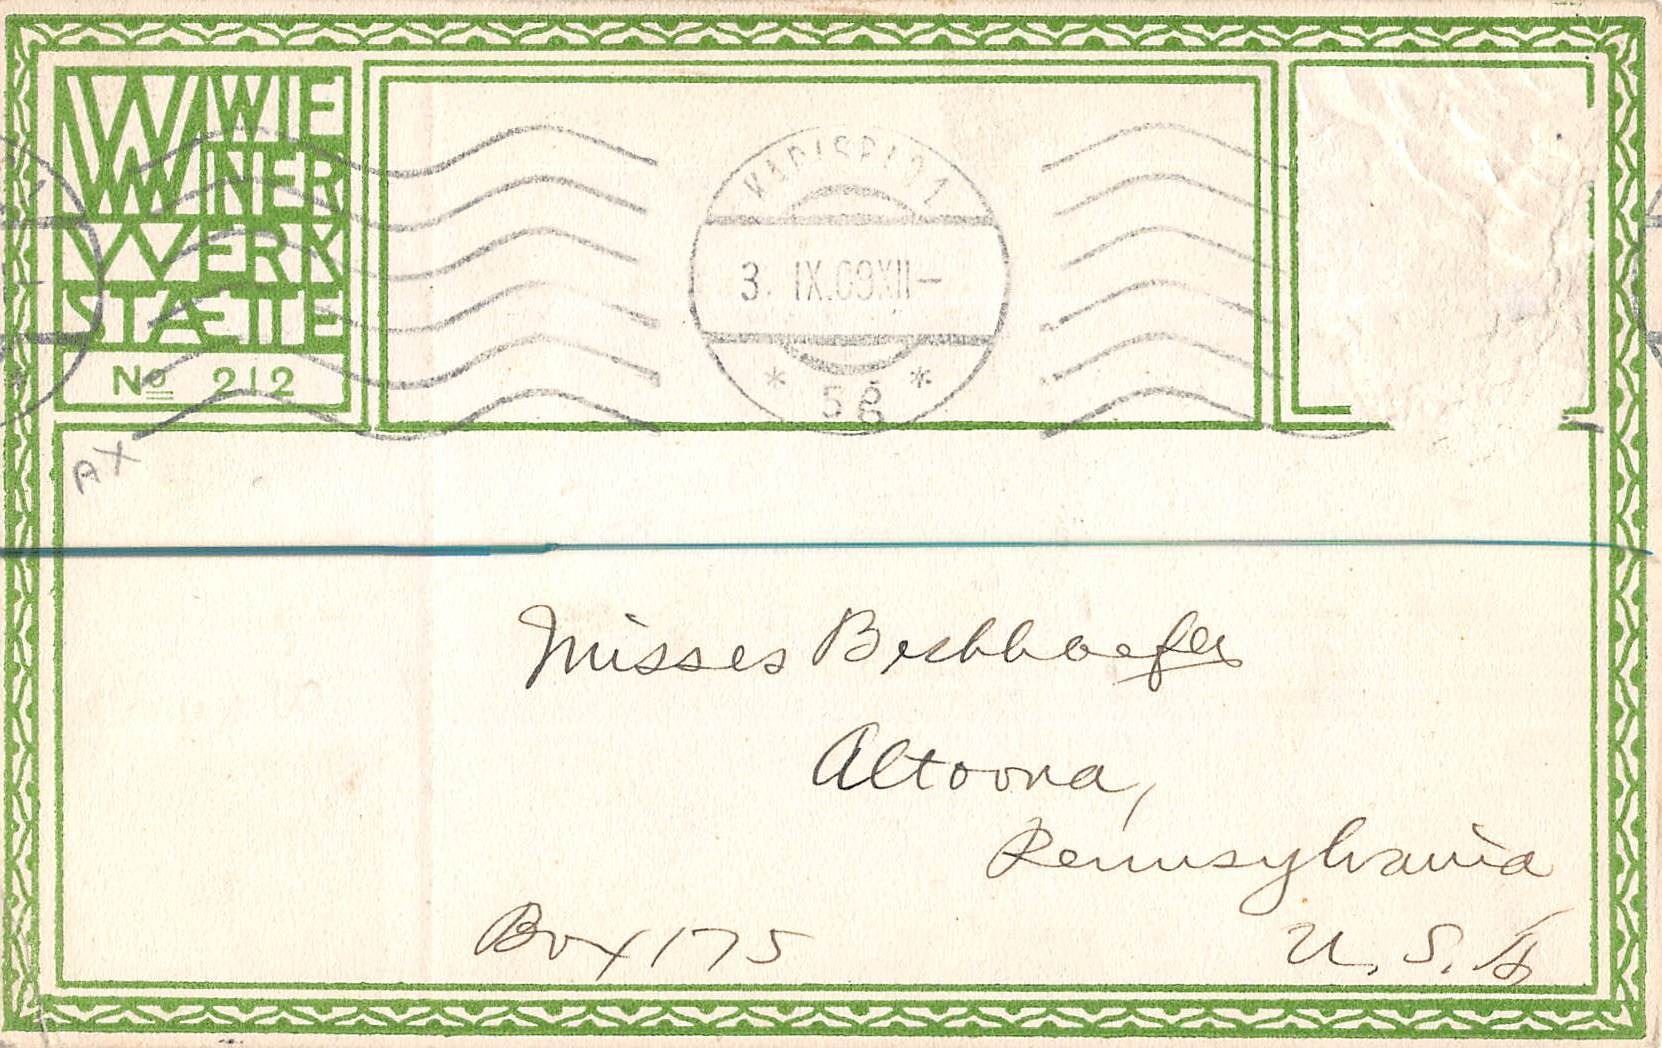 WW WIE
WW INER
WERK
STÆTTE
No 212
3. IX.09XII-
* 5 *
AX
Misses Beshhoefer
Altoona,
Pennsylvania
Box 175 U. S. A